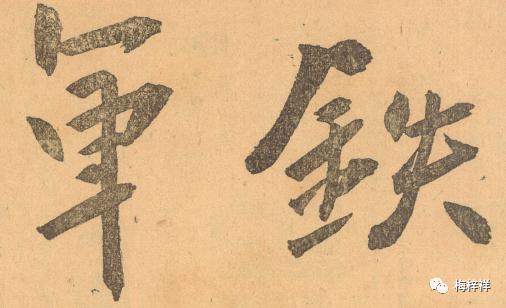 鉄軍
梅梓祥